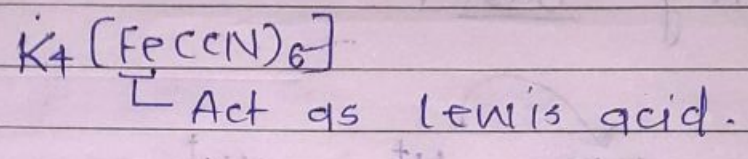 K4 [Fe(CN)6]
Act as lewis acid.